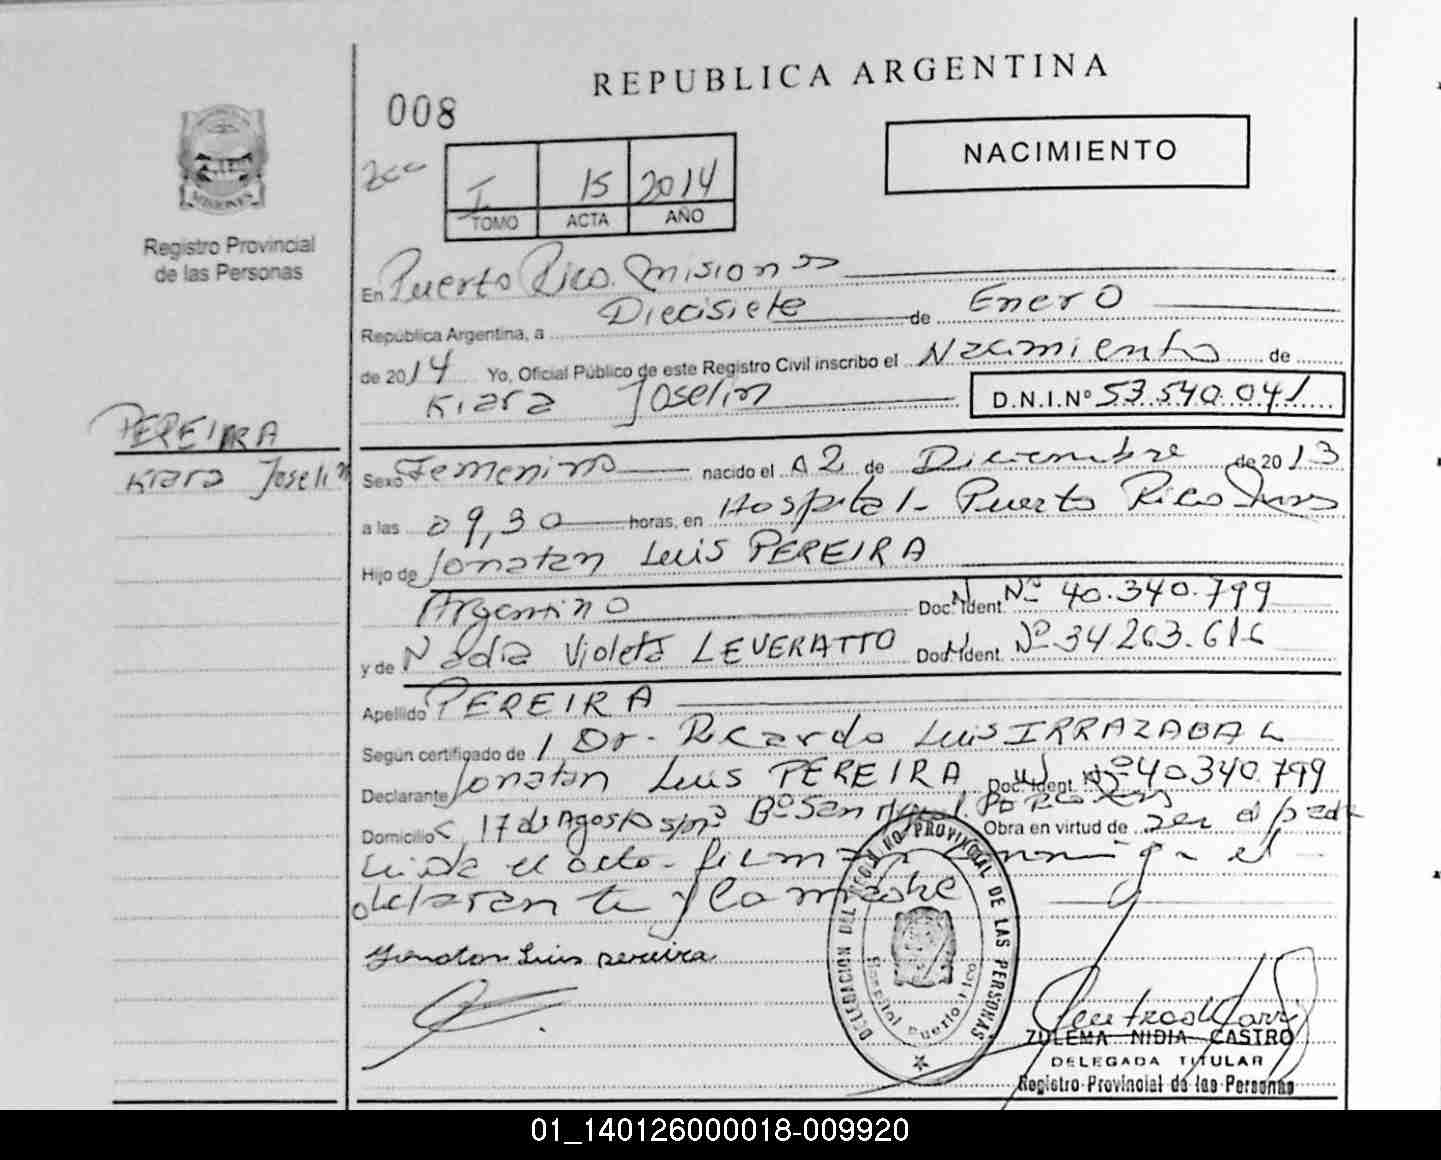 REPUBLICA ARGENTINA
008
NACIMIENTO
I 15 2014
TOMO ACTA AÑO
MISIONES
Registro Provincial
de las Personas
En Puerto Rico Misiones
República Argentina, a Diecisiete de Enero
de 2014 Yo, Oficial Público de este Registro Civil inscribo el Nacimiento de
Kiara Joselin D.N.I.Nº 53.540.041
PEREIRA
Kiara Joselin
Sexo Femenino nacido el 02 de Diciembre de 2013
a las 09,30 horas, en Hospital Puerto Rico
Hijo de Jonatan Luis PEREIRA
Argentino Doc. Ident. Nº 40.340.799
y de Nadia Violeta LEVERATTO Doc. Ident. Nº 34.263.616
Apellido PEREIRA
Según certificado de Dr. Ricardo Luis IRRAZABAL
Declarante Jonatan Luis PEREIRA Doc. Ident. Nº 40.340.799
Domicilio 17 de Agosto s/nº Bº San Miguel Pto Rico
Obra en virtud de ser el padre
el acto firman conmigo el
declarante y la madre
Jonatan Luis pereira
DELEGACION DEL REGISTRO PROVINCIAL DE LAS PERSONAS
Hospital Puerto Rico
ZULEMA NIDIA CASTRO
DELEGADA TITULAR
Registro Provincial de las Personas
01_140126000018-009920